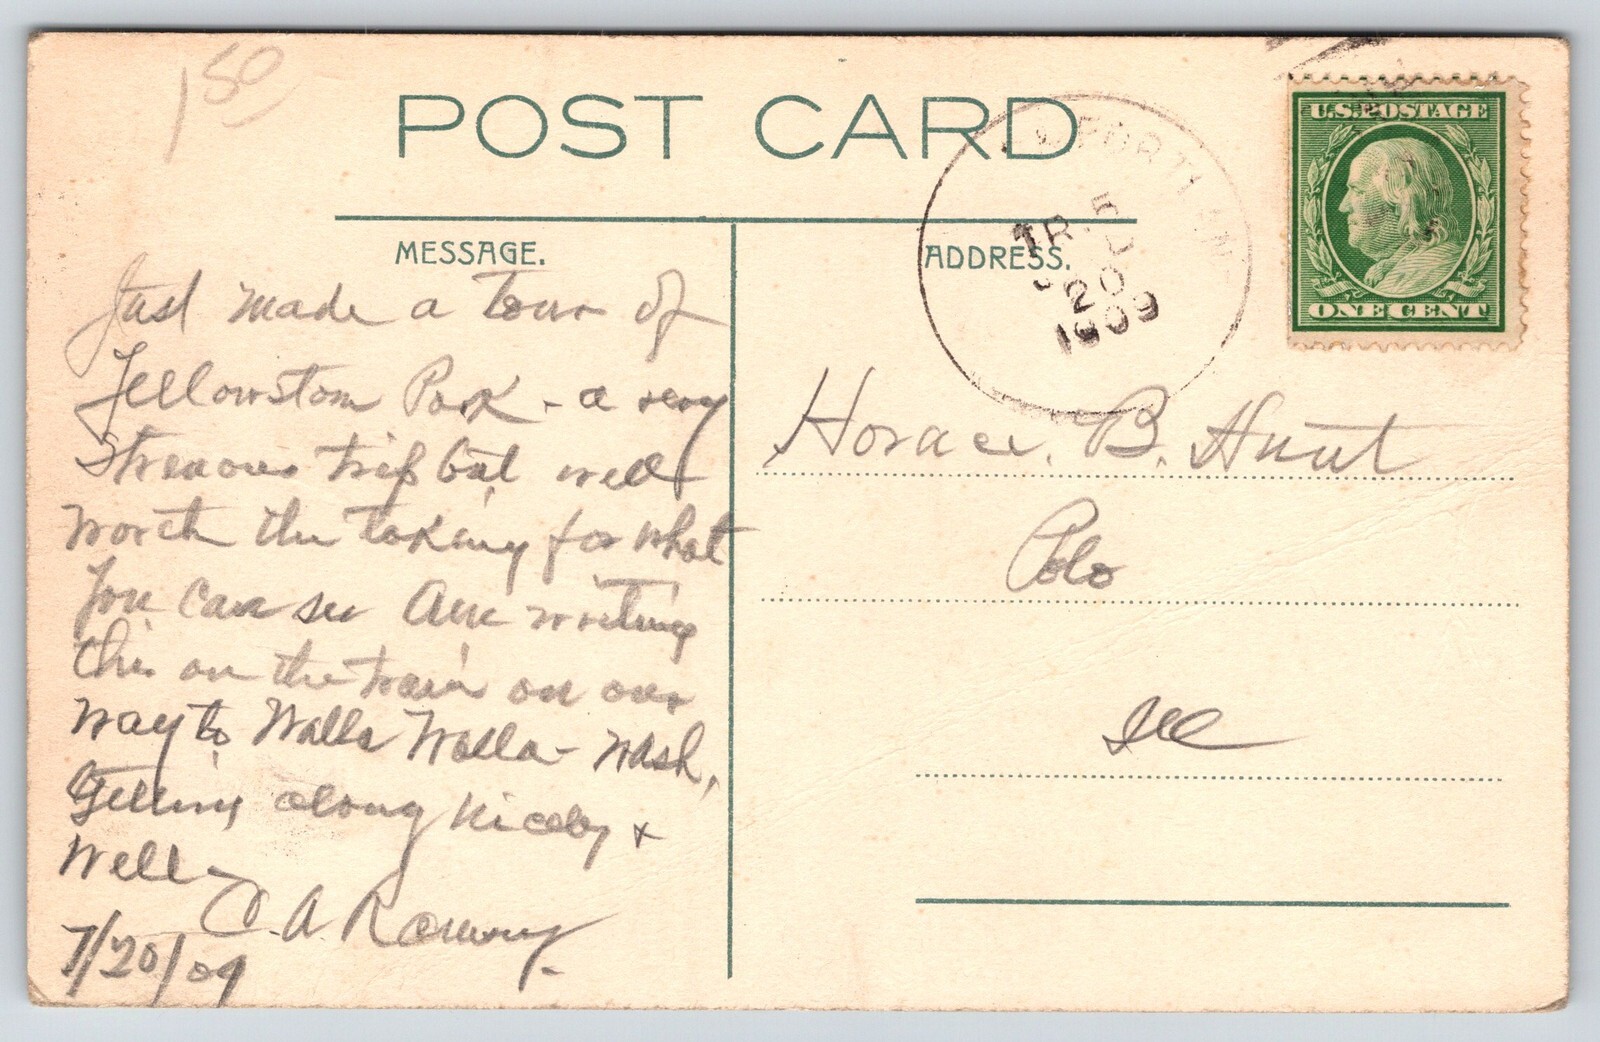 1 50
POST CARD
U.S. POSTAGE
ONE CENT
TR. 5
20
1909
MESSAGE.
ADDRESS.
Just made a tour of
Yellowstone Park - a very
Strenous trip but well
worth the taking for what
you can see Am writing
this on the train on our
way to Walla Walla - Wash,
Getting along nicely +
well -
7/20/09
Horace B. Hunt
Polo
Ill